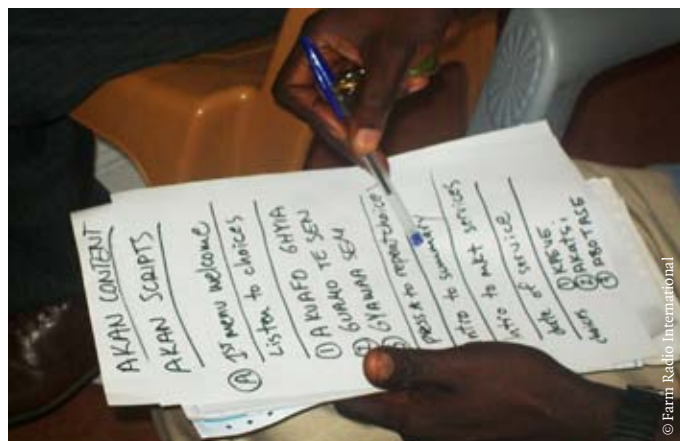 AKAN CONTENT
AKAN SCRIPTS
Ⓐ 1ST MENU welcome
Listen to choices
① AKUAFO GHYIA
GUAMO TE SEN
② GYAWAA SEM
③ press to repeat choices
intro to summary
intro to mkt services
intro of service
date
① KASUE.
② AKATSI
③ ABOTASE
© Farm Radio International